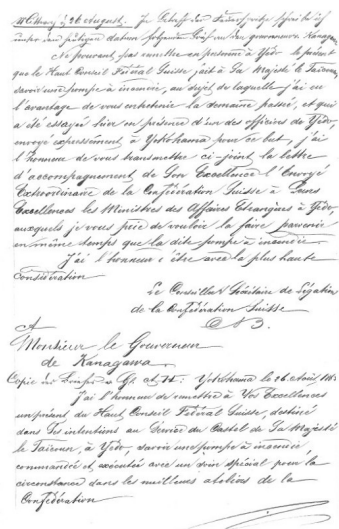 Mittwoch 26 August. In Betreff der
unter dem heutigen datum folgende Brief an den gouverneur Kanagawa
Ne pouvant pas remettre en personne à Yédo le présent
que le Haut Conseil Fédéral Suisse fait à Sa Majesté le Taicoun,
savoir une pompe à incendie, au sujet de laquelle j'ai eu
l'avantage de vous entretenir la semaine passée, et qui
a été essayée hier en présence d'un des officiers de Yédo,
envoyé expressément à Yokohama pour ce but, j'ai
l'honneur de vous transmettre ci-joint la lettre
d'accompagnement de Son Excellence l'Envoyé
Extraordinaire de la Confédération Suisse à Leurs
Excellences les Ministres des Affaires Etrangères à Yédo,
auxquels je vous prie de vouloir la faire parvenir
en même temps que la dite pompe à incendie.
J'ai l'honneur d'être avec la plus haute
considération
Le Conseiller & Secrétaire de Légation
de la Confédération Suisse
A
Monsieur le Gouverneur
de Kanagawa
Copie Yokohama le 26 Août 1863
J'ai l'honneur de remettre à Vos Excellences
un présent du Haut Conseil Fédéral Suisse, destiné
dans ses intentions au Service du Castel de Sa Majesté
le Taicoun, à Yédo, savoir une pompe à incendie
commandée et exécutée avec un soin spécial pour la
circonstance dans les meilleurs ateliers de la
Confédération